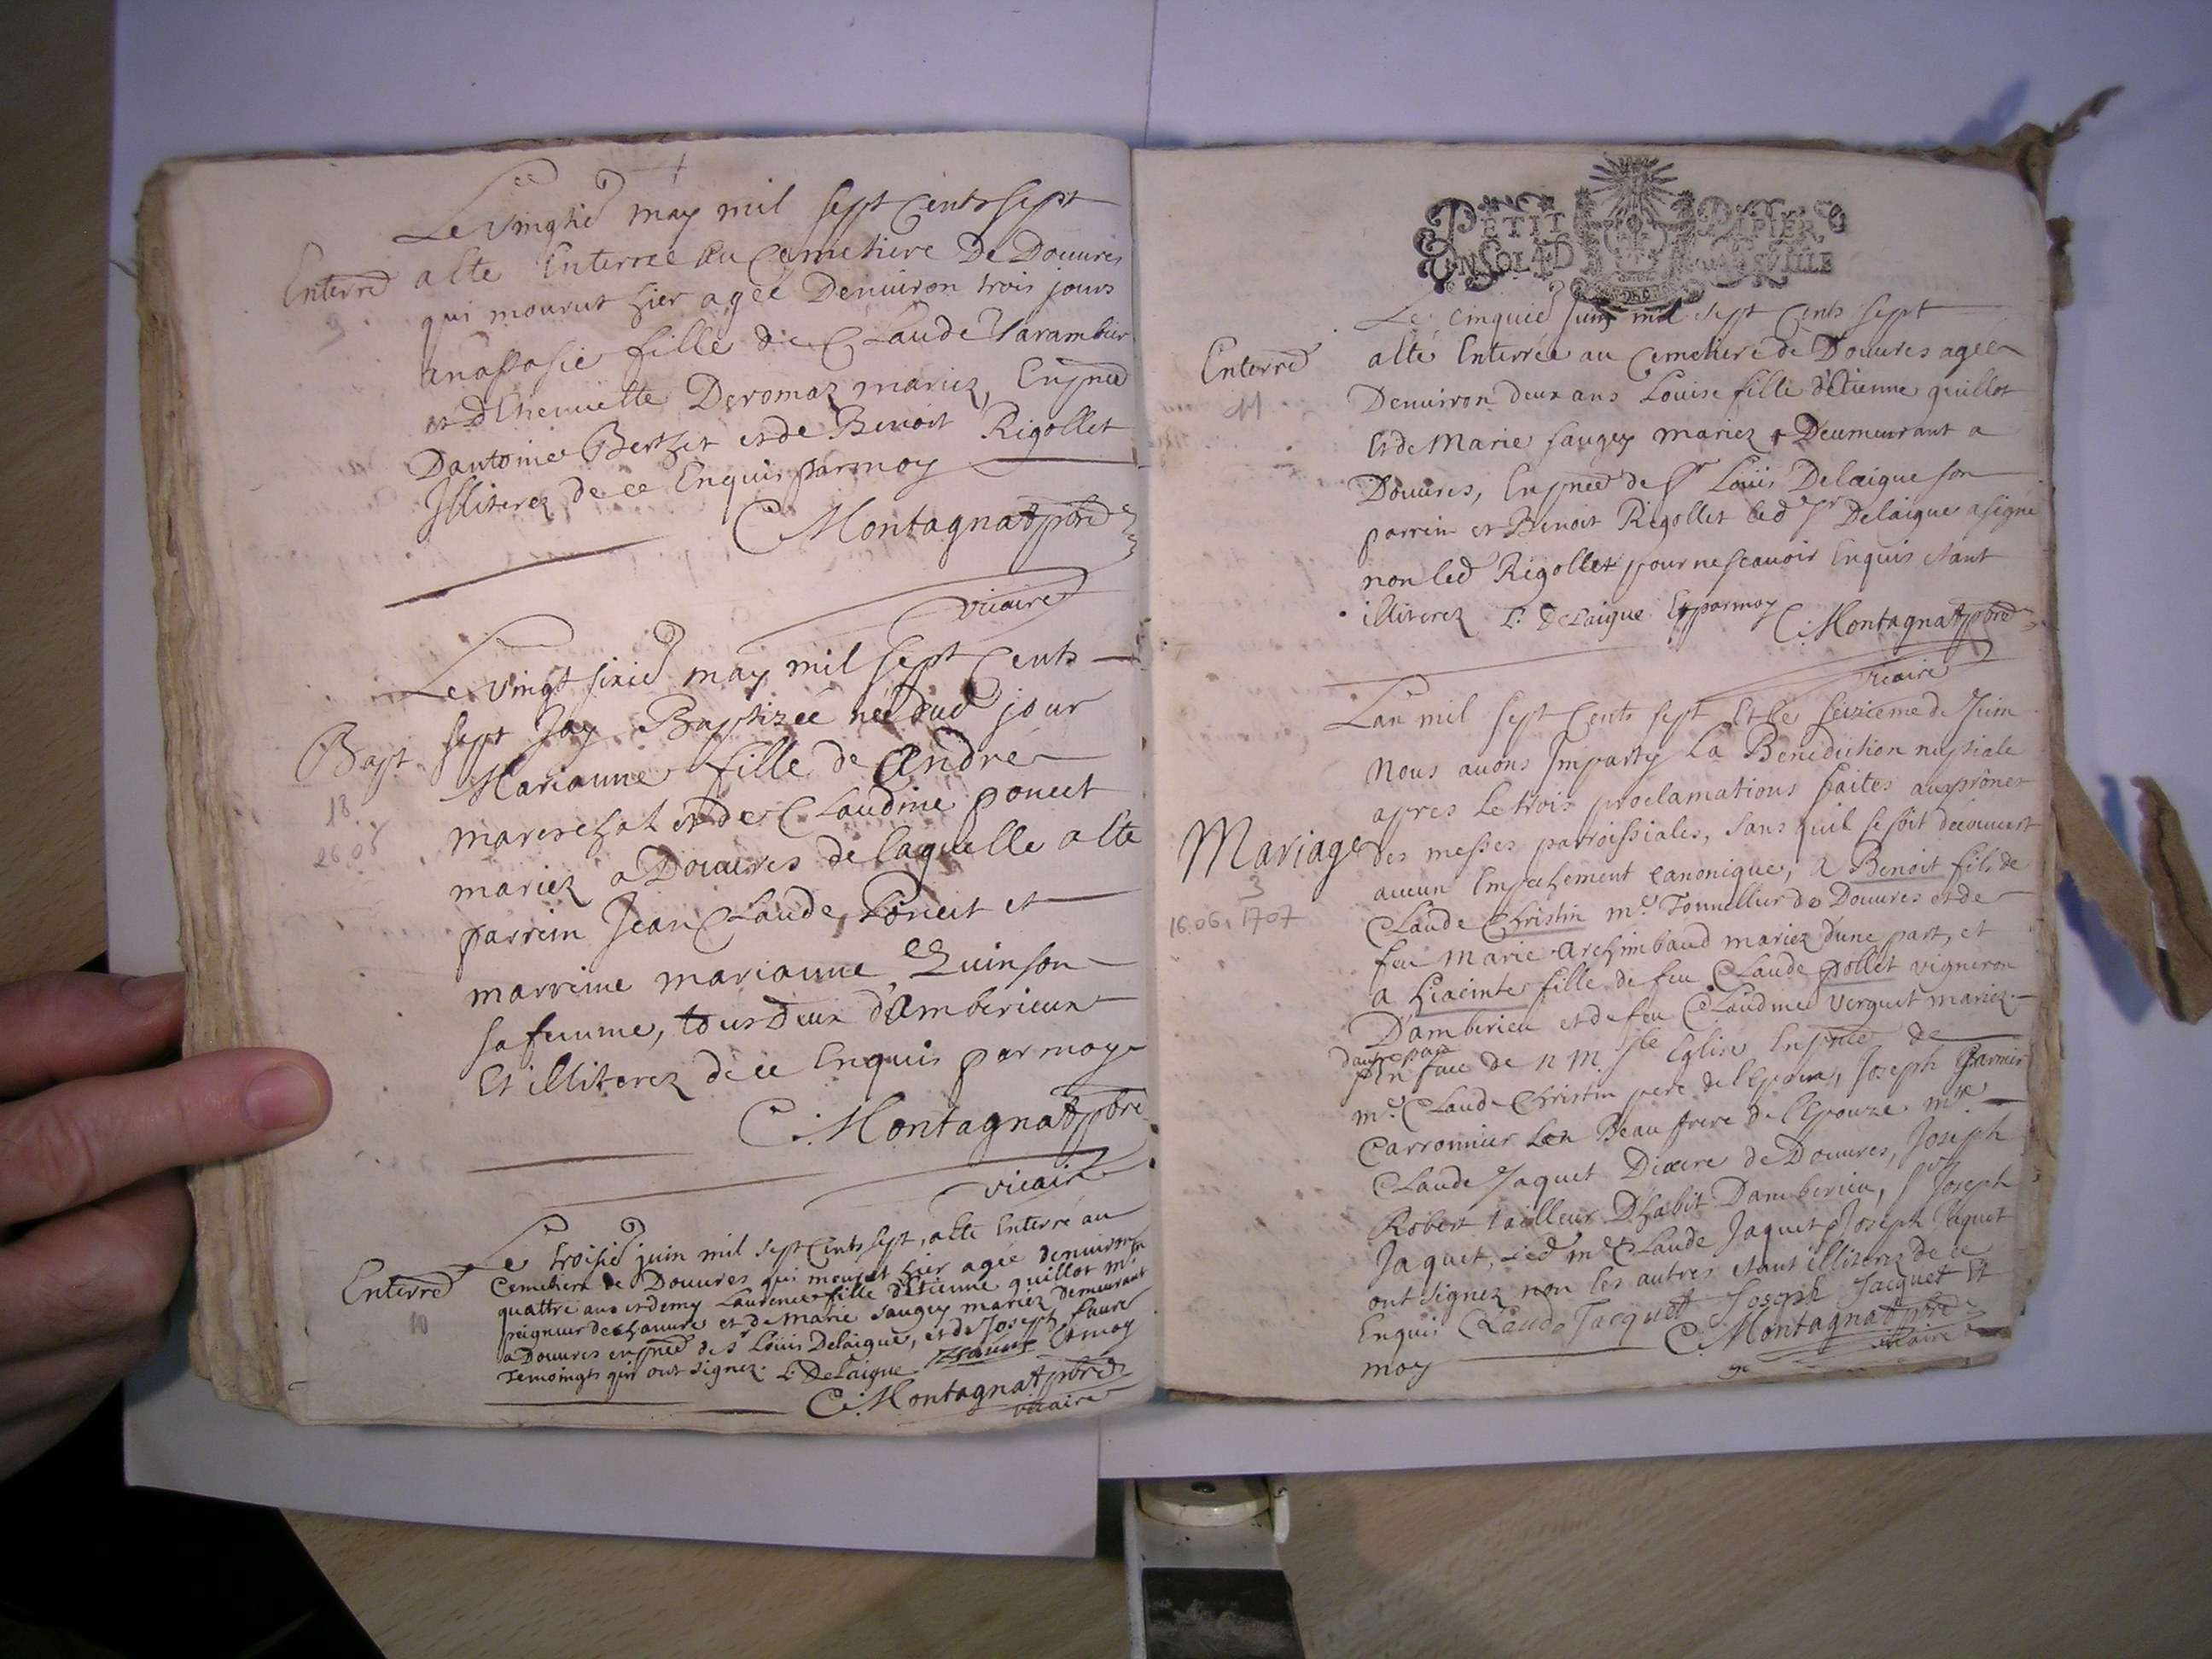 Le vingtie may mil sept cents sept
Enterré a esté enterrée au cemetiere De Douures
9
qui mourut hier agée Denuiron trois jours
anastasie fille de Claude Varambier
et Deromaz mariez, En pnce
Dantoine Berthet et de Benoit Rigollet
Illiterez de ce Enquis par moy
C. Montagnat pbre
vicaire
Le vingt sixie may mil sept cents
Bapt sept Jay Baptizée née dud jour
18
26.05
Marianne fille de André
mareschal et de Claudine poncet
mariez a Douures de laquelle a esté
parrein Jean Claude Poncet et
marreine marianne Quinson
sa femme, tous deux d'Amberieux
Et illiterez de ce Enquis par moy
C. Montagnat pbre
vicaire
Le troisie juin mil sept cents sept, a esté enterré au
Enterré
10
Cemetiere de Douures qui mourut hier agée denuiron
quattre ans et demy Laurence fille d'Etienne quillot mre
peigneur de chanure et de Marie saugey mariez demeurant
a Douures en pnce de sr Loüis Delaigue, et de Joseph faure
Temoingts qui ont signez. L. DeLaigue et moy
C. Montagnat pbre
vicaire
PETIT PAPIER
UN SOL 4 D
Le cinquie juin mil sept cents sept
Enterré
11
a esté Enterrée au cemetiere de Douures agée
Denuiron deux ans Louise fille d'Etienne quillot
et de Marie saugey mariez Deumeurant a
Douures, En pnce de Sr Loüis Delaigue son
parrein et Benoit Rigollet led Sr Delaigue a signé
non led Rigollet pour ne scauoir Enquis etant
illiterez L. DeLaigue Et par moy C. Montagnat pbre
vicaire
Lan mil sept cents sept et le seizieme de Juin
Nous auons Imparty La Benediction nuptiale
apres le trois proclamations faites aux prônes
Mariage des messes parroissiales, sans quil se soit decouuert
3
16.06.1707
aucun Empechement canonique, a Benoit fils de
Claude Christin me Tonnellier de Douures et de
feu Marie Archimbaud mariez d'une part, et
a hiacinte fille de feu Claude pollet vigneron
D'amberieu et de feu Claudine verguet mariez
dautre part
En face de n m ste Eglise En pnce de
me Claude Christin pere de l'Epoux, Joseph Garnier
Carronnier Beau frere de l'Epouze me
Claude Jaquet de Douures, Joseph
Robert tailleur D'habit Damberieu, sr Joseph
Jaquet, Led me Claude Jaquet Joseph Jaquet
ont signez non les autres etant illiterez de ce
Enquis Claude Jacquet Joseph Jacquet Et
moy C. Montagnat pbre
vicaire